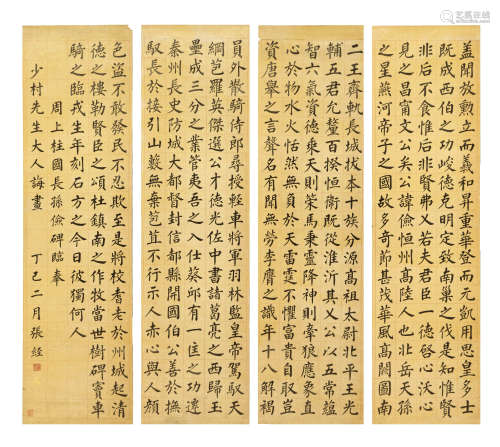 蓋聞放勳立而羲和昇重華登而元凱用思皇多士
既成西伯之功峻德克明定致南巢之伐是知惟賢
非后不食惟后非賢弗乂若夫君臣一德啓心沃心
見之昌甯文公矣公諱儉恒州高陸人也北岳天孫
之星燕河帝子之國故多奇節甚茂華風高闕圖南
二王齊軌長城狀本十族分源高祖太尉北平王光
輔五君允釐百揆恒衡既從淮沂其乂公以五常蘊
智六氣資德乘天則榮馬秉靈降神則牽狼應象直
心於物水火怙然無負於天雷霆不懼富貴自取豈
資唐舉之言聲名有聞無勞李膺之識年十八解褐
員外散騎侍郎尋授輕車將軍羽林監皇帝駕馭天
綱苞羅英傑選公才德光佐中書諸葛亮之西歸玉
壘成三分之業管夷吾之入仕葵邱有一匡之功遷
秦州長史防城大都督封信都縣開國伯公善於撫
馭長於接引山藪無棄苞苴不行示人赤心與人顏
色盜不敢發民不忍欺至是將校耆老於州城起清
德之樓勒賢臣之頌杜鎮南之作牧當世樹碑竇車
騎之臨戎生年刻石方之今日彼獨何人
周上柱國長孫儉碑臨奉
少村先生大人誨畫 丁巳二月張經
艺典中国